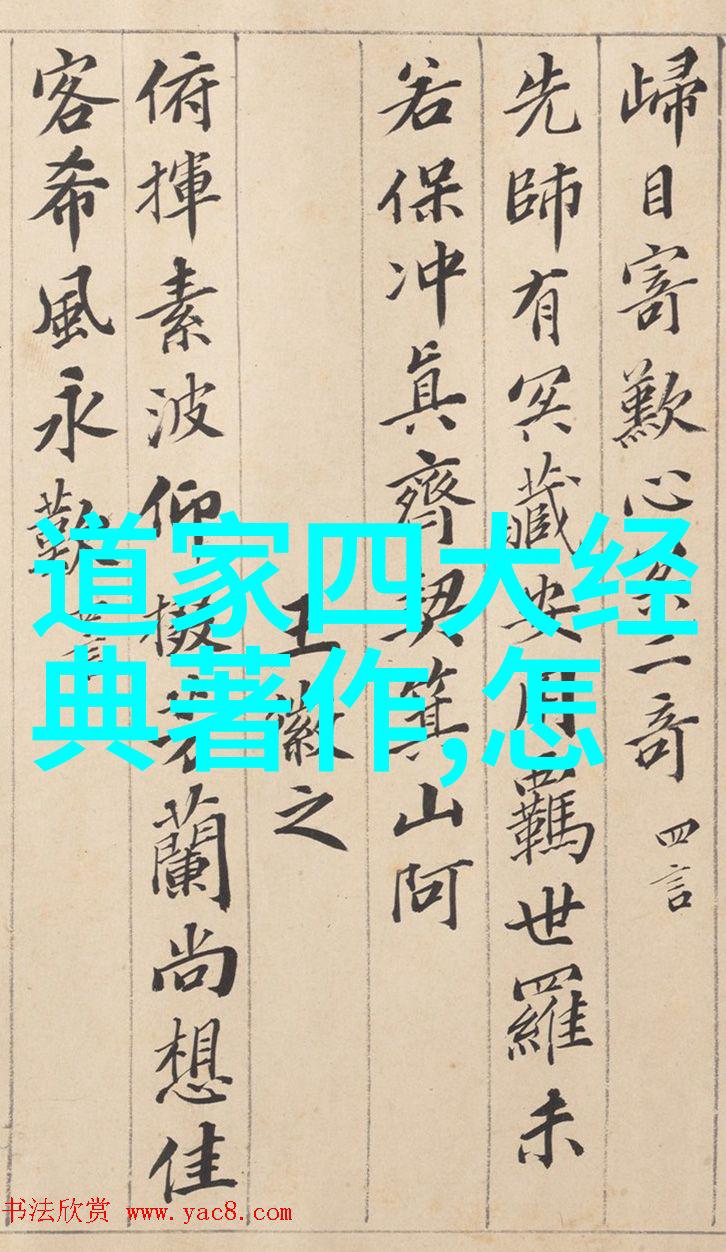 歸目寄歎心冥二奇 四言
先師有冥藏安用羈世羅未
若保冲真齊契箕山阿
王徽之
俯揮素波仰掇芳蘭尚想佳
客希風永歎
道家四大经
典著作,怎
书法欣赏 www.yac8.com